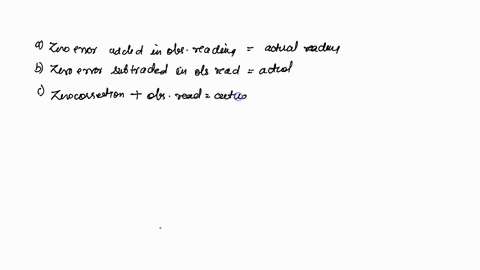 a) Zero error added in obs. reading = actual reading
b) Zero error subtraded in obs read = actual
c) Zerocorrection + obs. read =